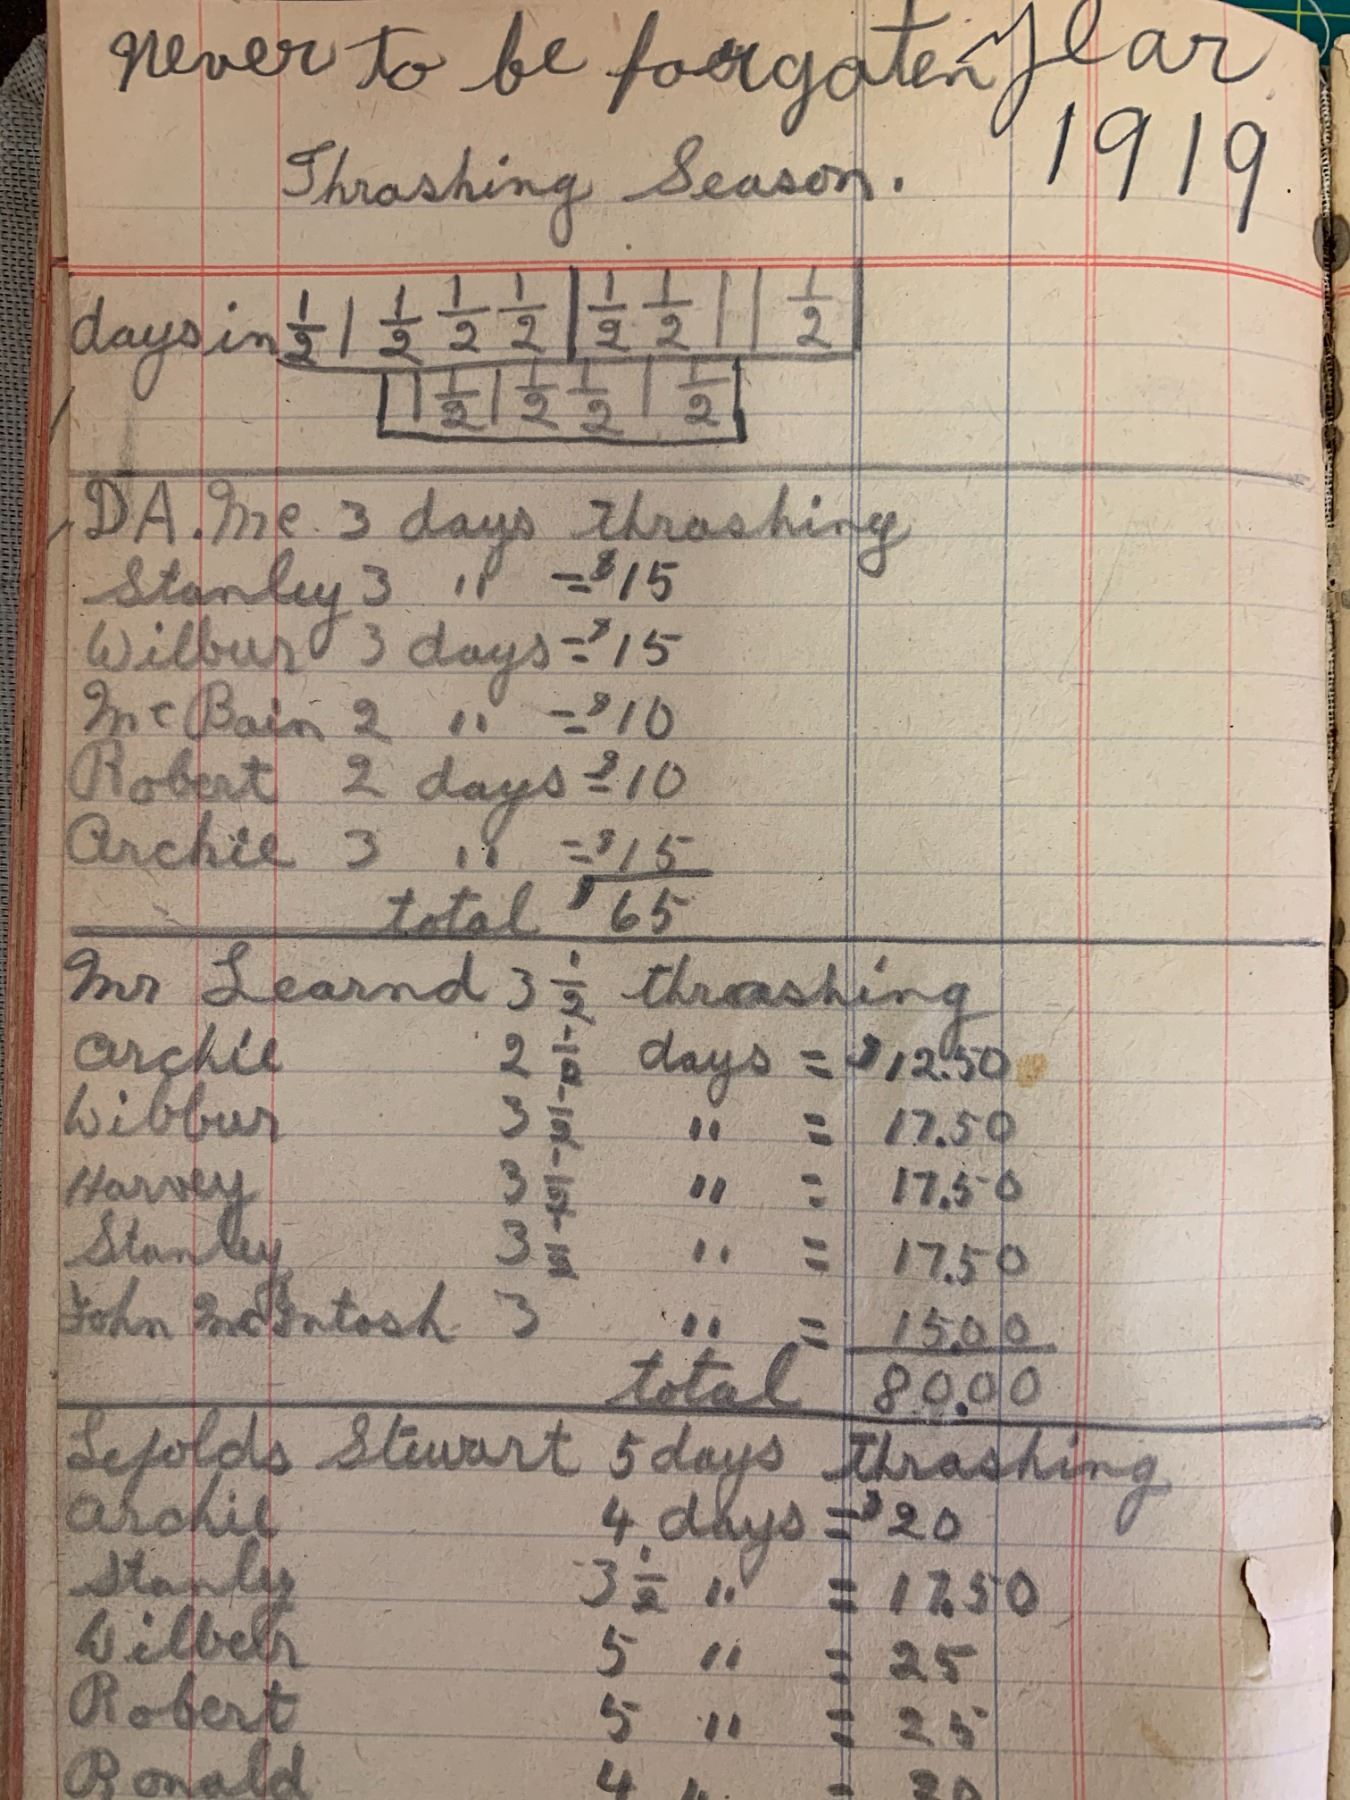 Never to be foorgaten year
1919
Thrashing Season.
days in 1/2 | 1/2 1/2 1/2 | 1/2 1/2 | | 1/2 |
| | 1/2 | 1/2 1/2 | 1/2 |
DA. Mc 3 days thrashing
Stanley 3 " = $15
Wilbur 3 days = $15
McBain 2 " = $10
Robert 2 days = $10
Archie 3 " = $15
total $65
Mr Learnd 3 1/2 thraashing
Archie 2 1/2 days = $12.50
Wibbur 3 1/2 " = 17.50
Harvey 3 1/2 " = 17.50
Stanley 3 1/2 " = 17.50
John McIntosh 3 " = 15.00
total 80.00
Lefolds Stewart 5 days thrashing
Archie 4 days = $20
Stanly 3 1/2 " = 17.50
Wilber 5 " = 25
Robert 5 " = 25
Ronald 4 " = 20